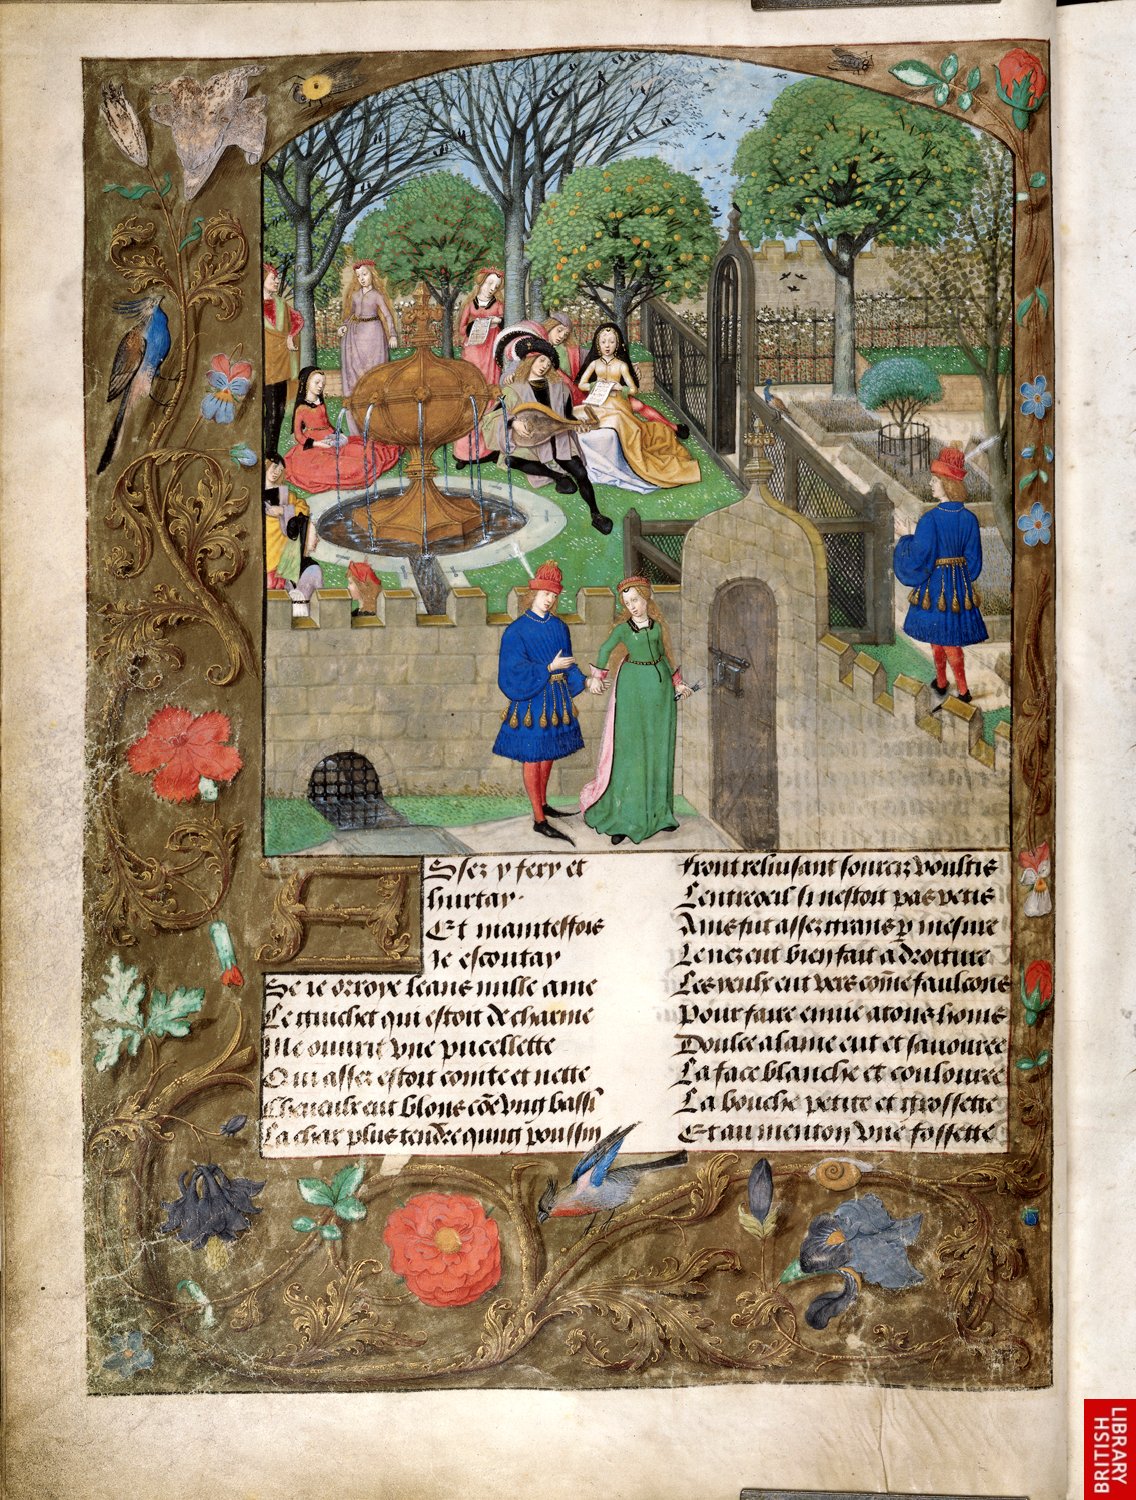 Assez y fery et
hurtay.
Et maintesfois
Je escoutay
Se ie orroye leans nulle ame
Le guichet qui estoit de charme
Me ouurit vne pucellette
Qui assez estoit cointe et nette
Cheueulx eut blons cõe vng bassĩ
La char plus tendre qung poussin
Front reluisant sourciz voultis
Lentreoeil si nestoit pas petis
Ains fut assez grans p mesure
Le nez eut bien fait a droiture
Les yeulx eut vers cõme faulcons
Pour faire enuie a tous homs
Doulce alaine eut et sauouree
La face blanche et coulouree
La bouche petite et grossette
Et au menton vne fossette
BRITISH
LIBRARY